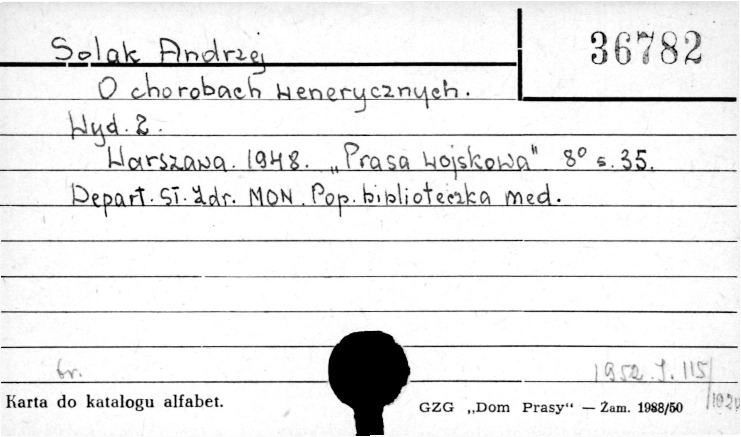 Solak Andrzej
36782
O chorobach wenerycznych.
Wyd. 2.
Warszawa. 1948. „Prasa wojskowa" 8° s. 35.
Depart. Sł. Zdr. MON. Pop. biblioteczka med.
br.
1952. J. 115/
Karta do katalogu alfabet.
GZG „Dom Prasy“ — Zam. 1988/50